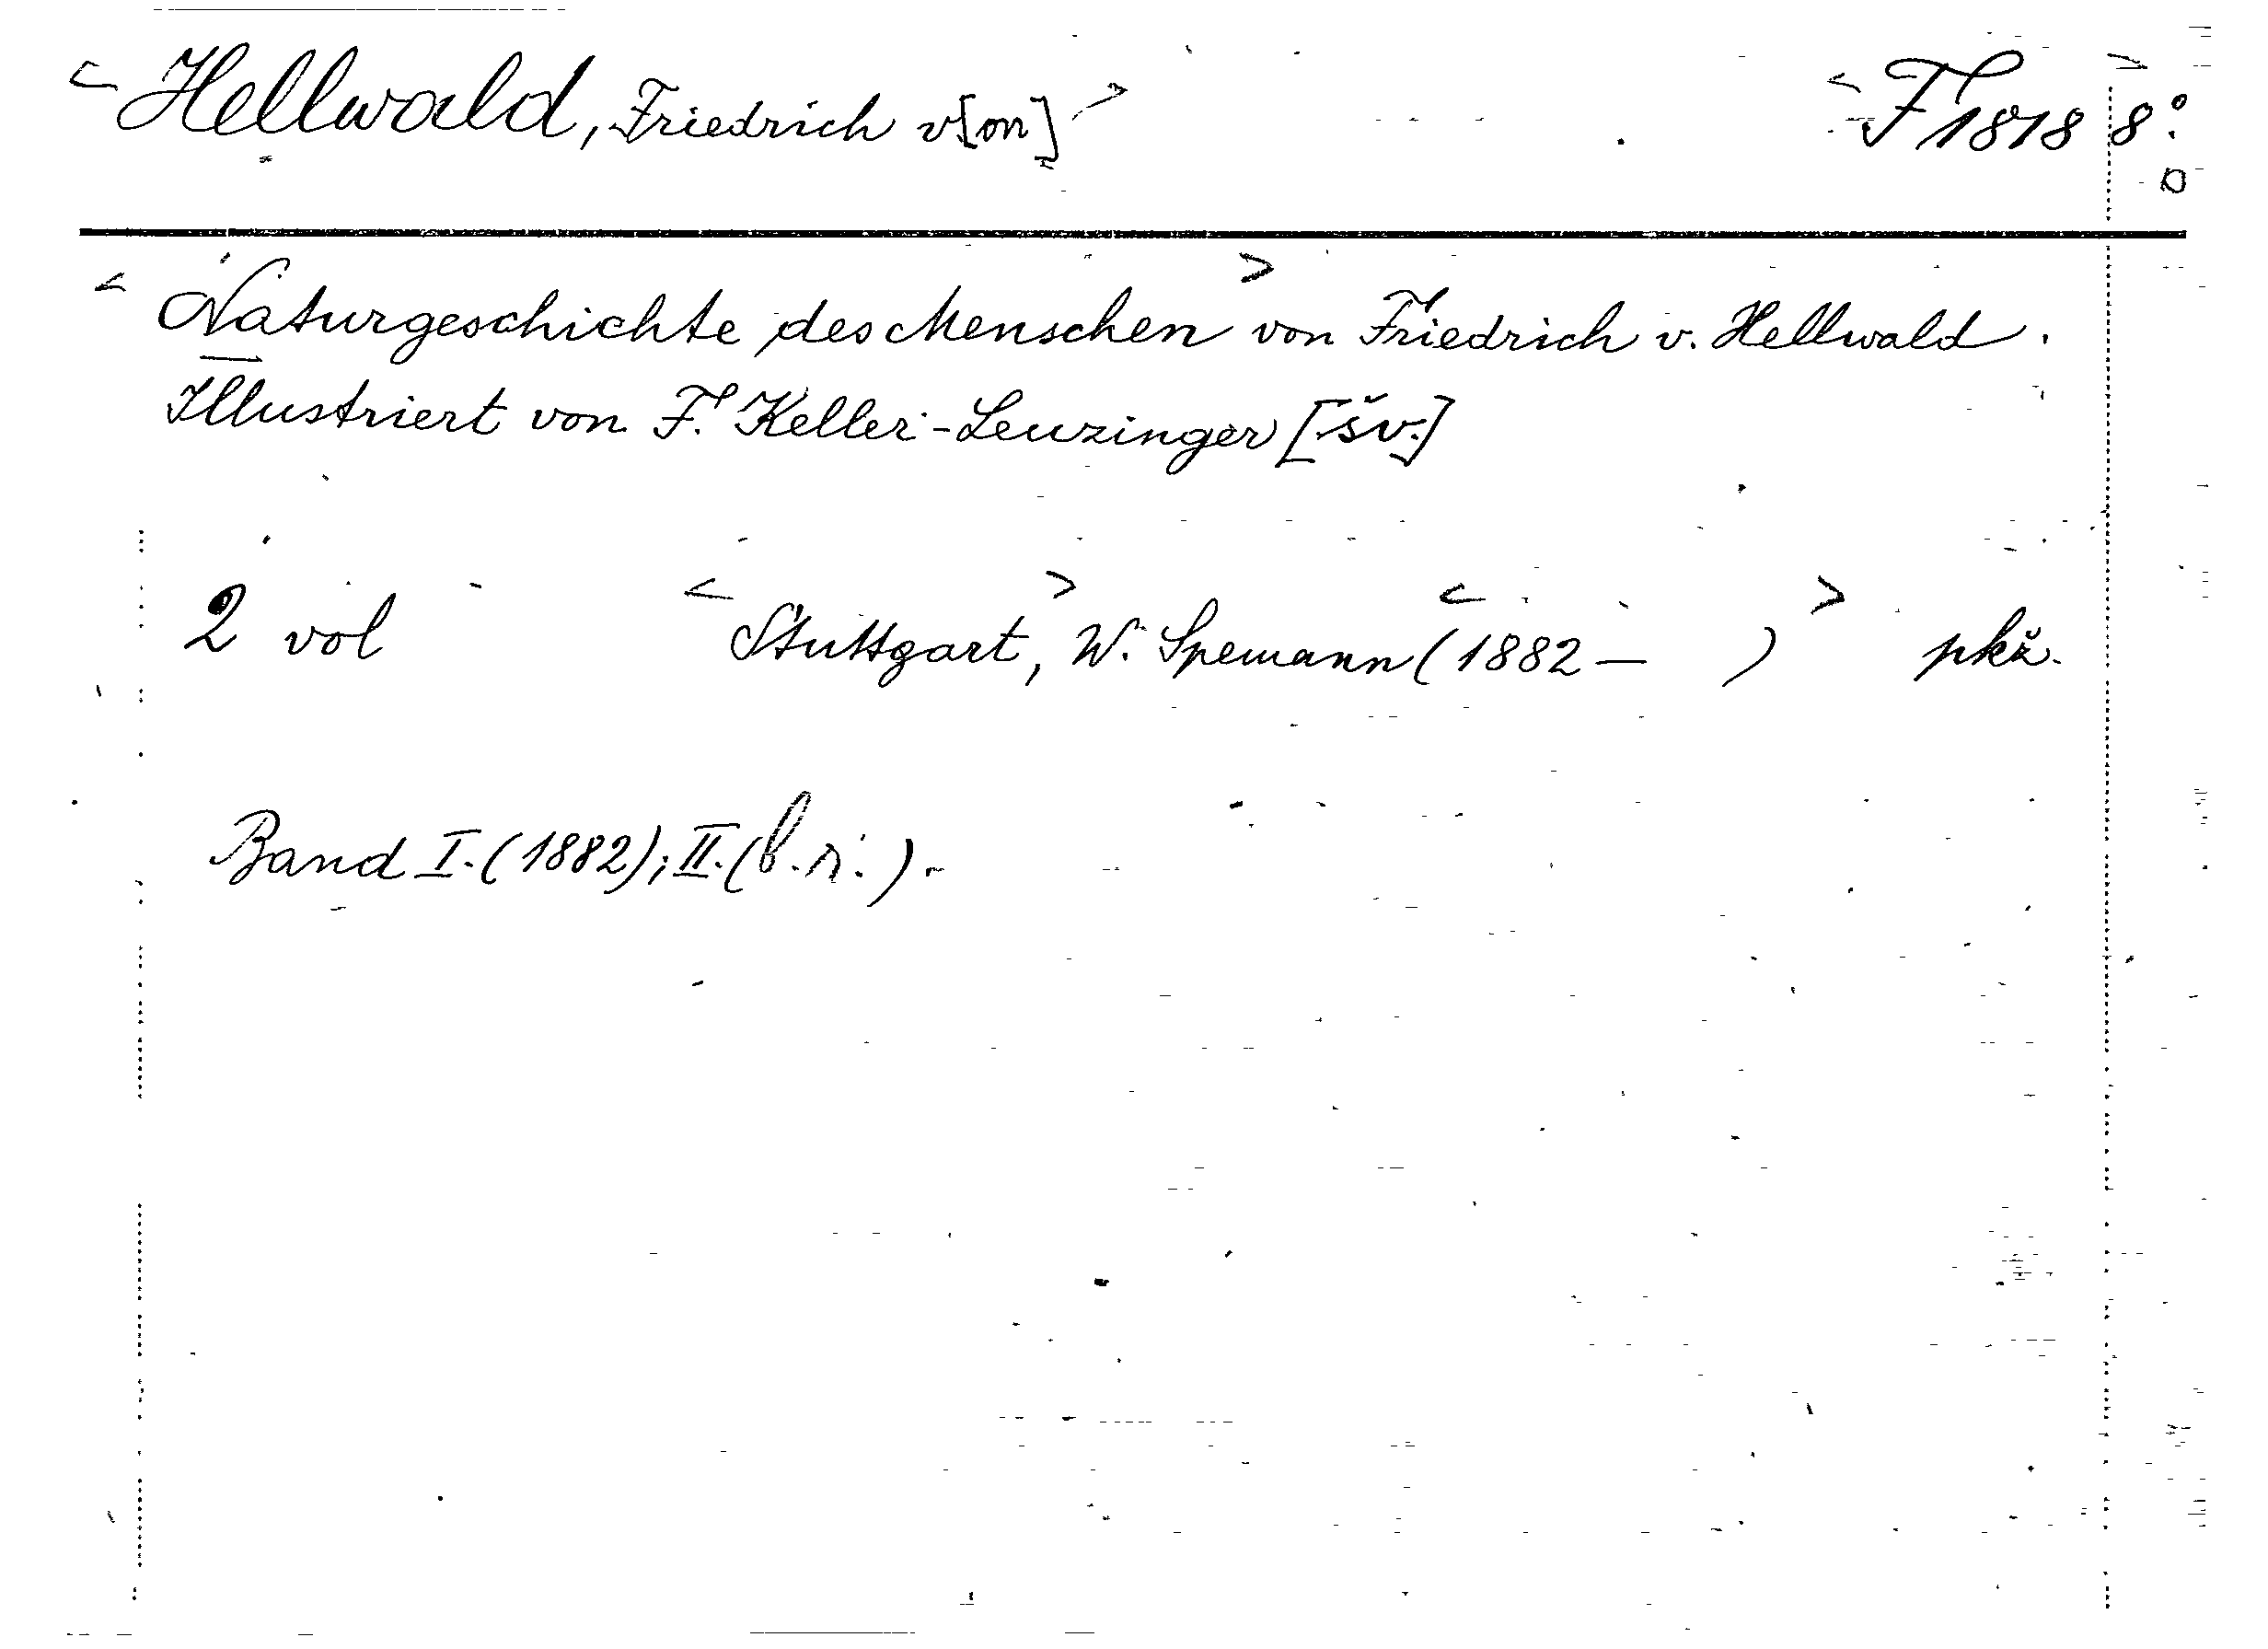 <Hellwald, Friedrich v[on]> <F 1818 8°.>
<Naturgeschichte des Menschen> von Friedrich v. Hellwald.
Illustriert von F. Keller-Leuzinger [šv.]
2 vol <Stuttgart,> W. Spemann <(1882 — )> pkž.
Band I. (1882); II. (b. r.).